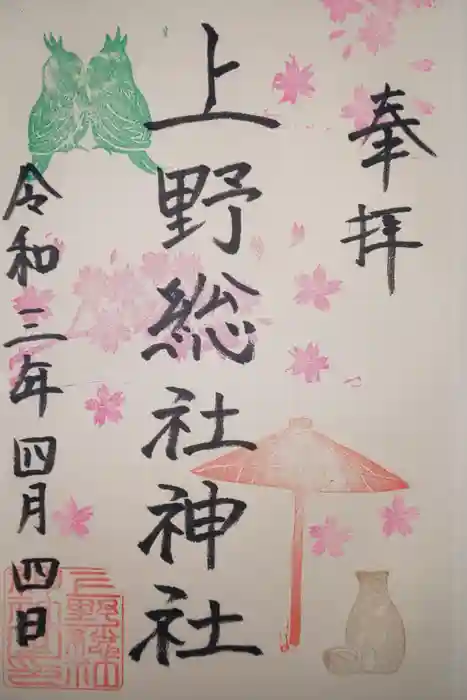 奉拝
上野総社神社
令和三年四月四日